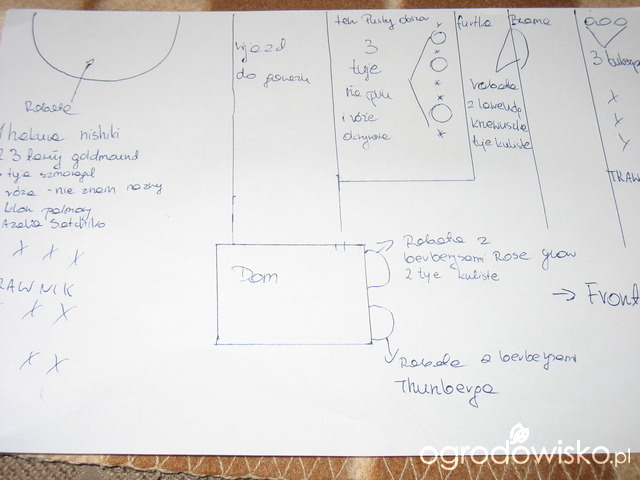 Rabata
1 hakuro nishiki
2 3 tawuły goldmound
tuja szmaragd
róża - nie znam nazwy
klon palmowy
Azalia Satchiko
X X X
RAWNIK
X X
X X
wjazd
do garażu
ten Pusty obszar
3
tuje
na pniu
i róże
okrywowe
furtka
Brama
rabata
z lawendą
kulista
3 bukszp
X
X
X
TRAW
Dom
Rabata z
berberysami Rose glow
2 tuje kuliste
→ Front
Rabata z berberysami
Thunberga
ogrodowisko.pl